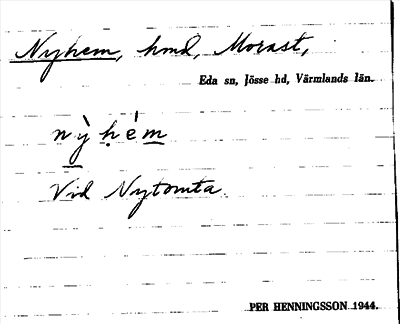 Nyhem, hmd, Morast,
Eda sn, Jösse hd, Värmlands län.
nỳ ḥém
Vid Nytomta.
PER HENNINGSSON 1944.